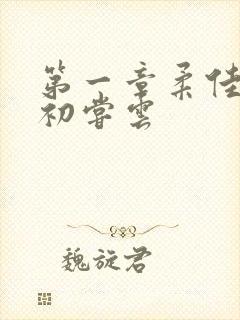 第一章柔佳
初尝雲
魏旋君